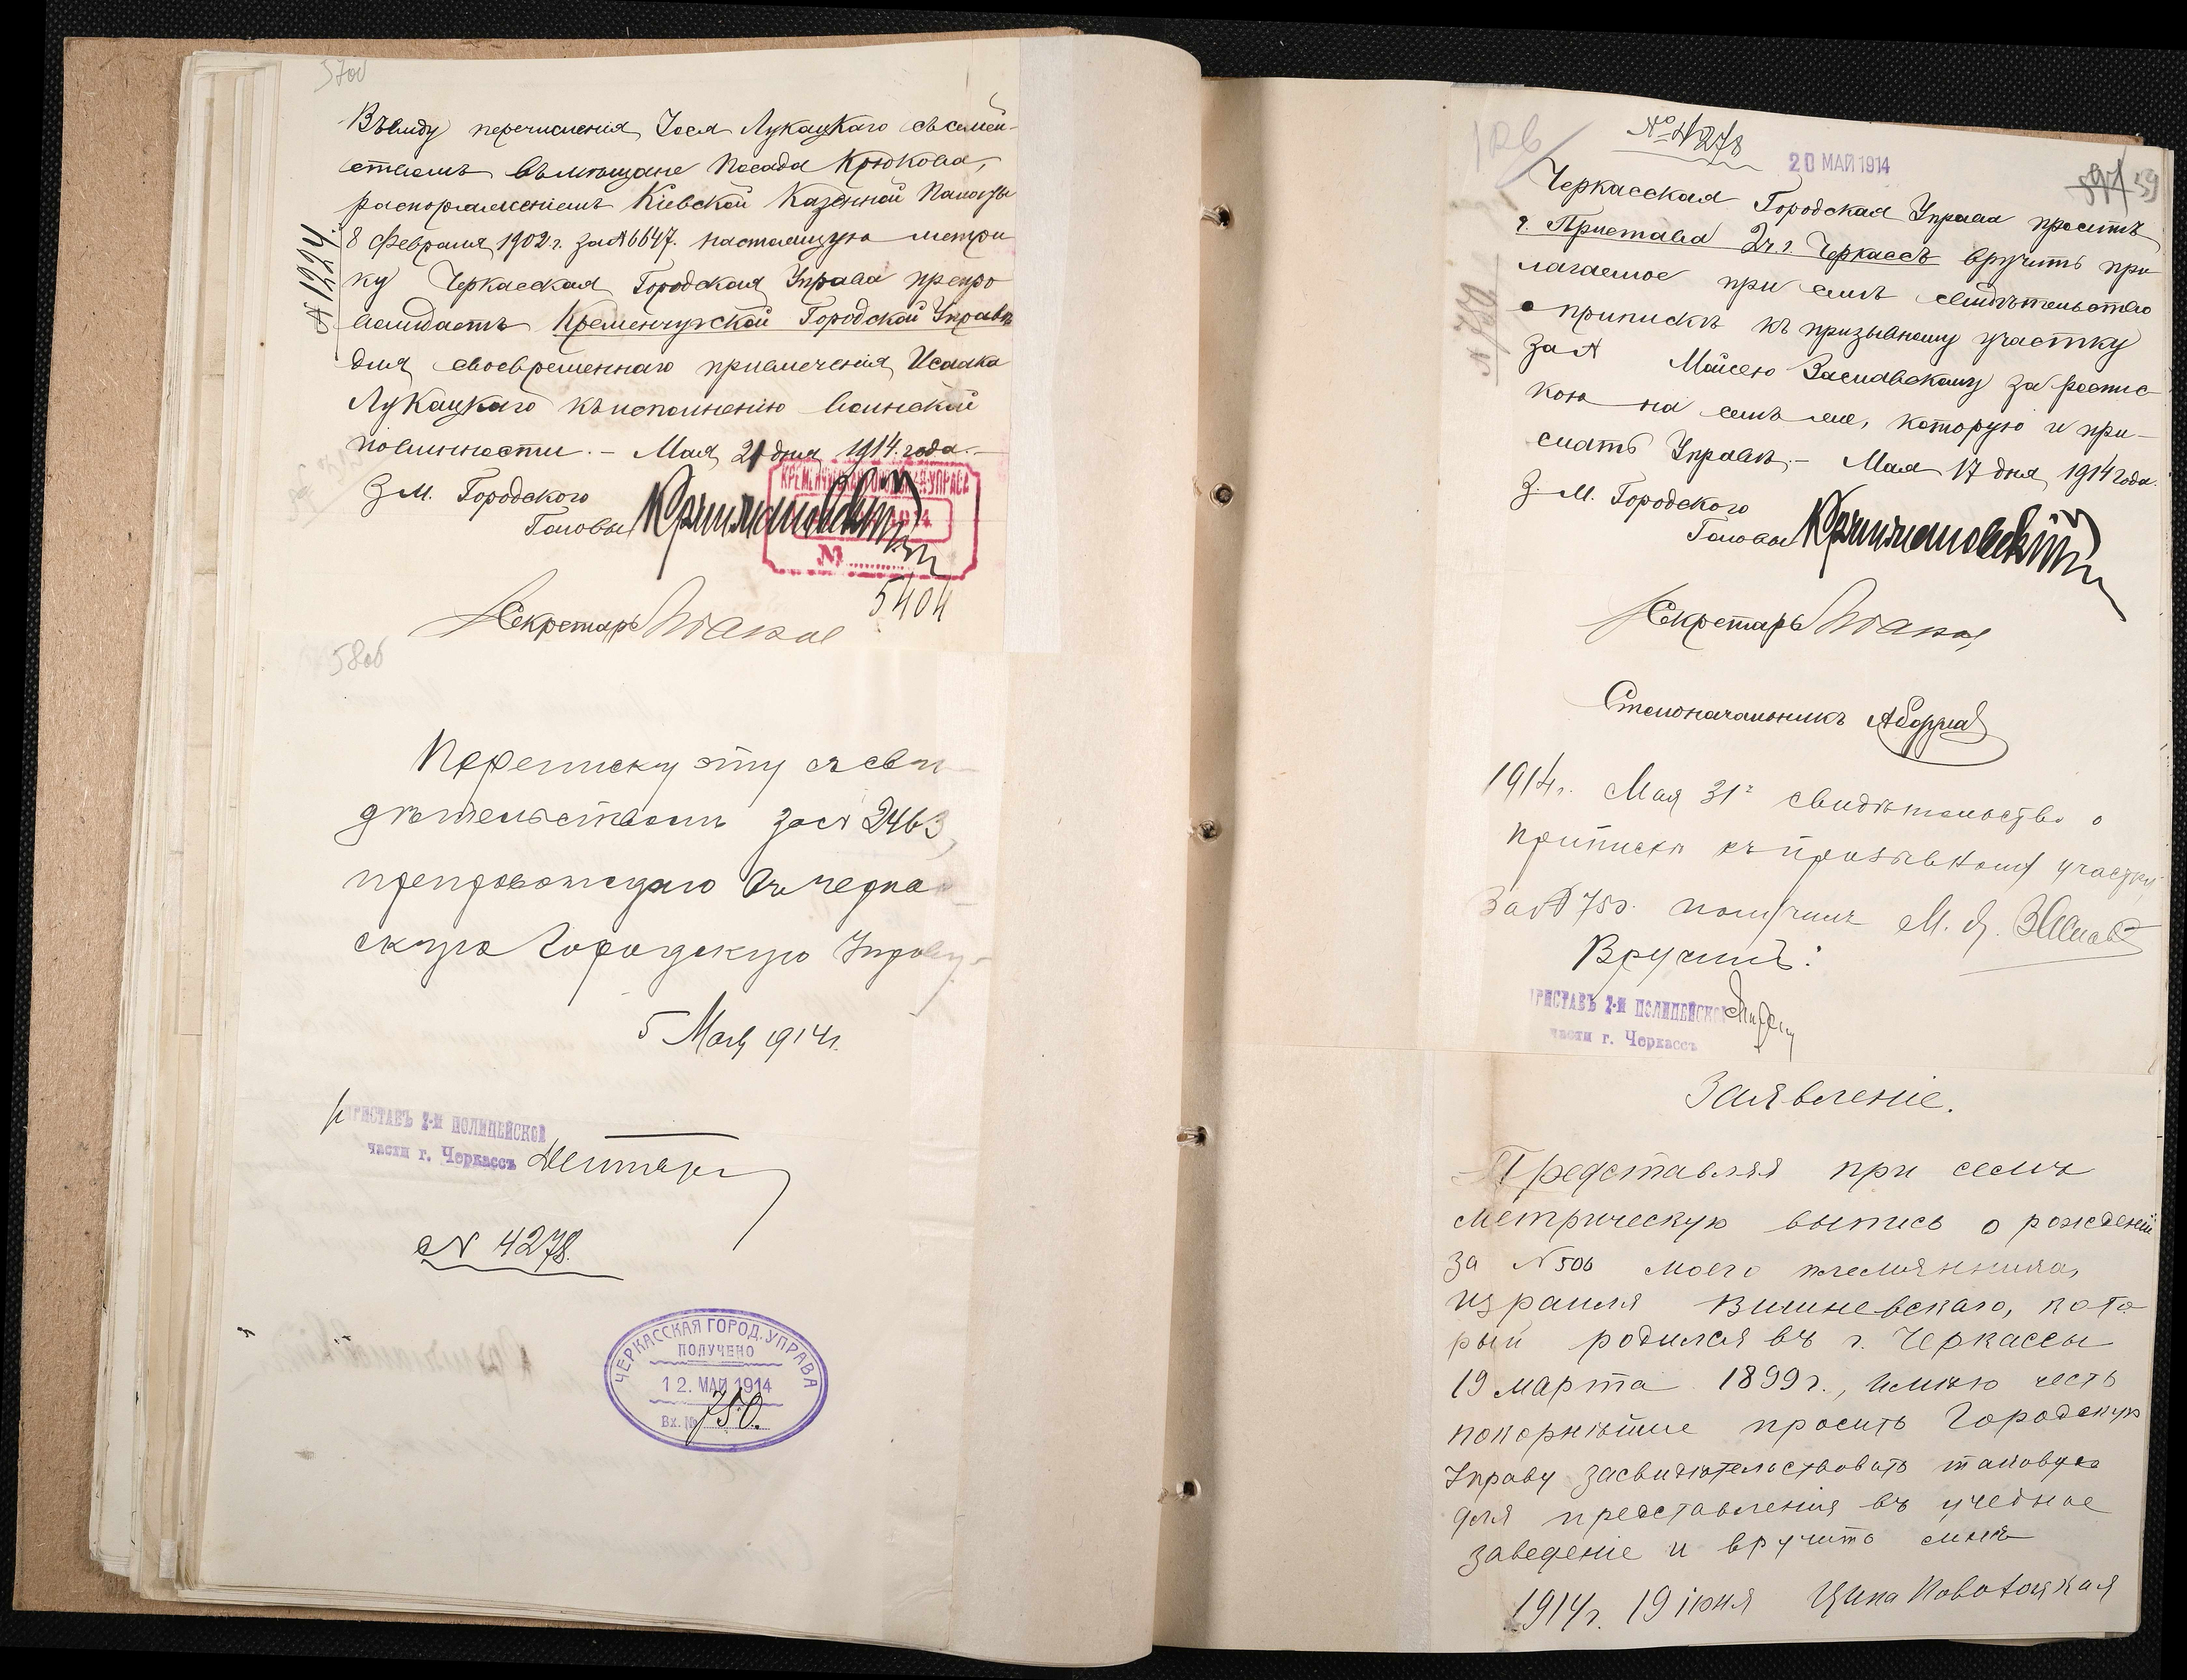 57об
Въ виду перечисленія Іося Лукацкаго съ семей-
ствомъ въ мѣщане Посада Крюкова,
распоряженіемъ Кіевской Казенной Палаты
8 Февраля 1902 г. за № 6647. настоящую метри
ку Черкасская Городская Управа препро
вождаетъ Кременчугской Городской Управѣ
для своевременнаго привлеченія Исаака
Лукацкаго къ исполненію воинской
повинности. - Мая 21 дня 1914 года. -
№ 1224.
З. М. Городского
Головы Крижановскій
КРЕМЕНЧУГСКАЯ ГОРОДСКАЯ УПРАВА
1914
№
5404
Секретарь
58об
Переписку эту съ сви-
дѣтельствомъ за № 2463,
препровождаю въ Черкас-
скую Городскую Управу.
5 Мая 1914 г.
ПРИСТАВЪ 2-й ПОЛИЦЕЙСКОЙ
части г. Черкассъ
№ 4278.
ЧЕРКАССКАЯ ГОРОД. УПРАВА
ПОЛУЧЕНО
12. МАЙ 1914
Вх. № 750.
№ 4278
20 МАЙ 1914
59
Черкасская Городская Управа проситъ
г. Пристава 2 ч. г. Черкассъ вручить при
лагаемое при семъ свидѣтельство
о припискѣ къ призывному участку
за № Мойсею Заславскому за роспис-
кою на семъ же, которую и при-
слать Управѣ. - Мая 17 дня 1914 года.
№ 750
З. М. Городского
Головы Крижановскій
Секретарь
Столоначальникъ
1914 г. Мая 31 г. свидѣтельство о
приписки къ призывному участку
за № 750. получилъ М. Я. Заслав
Вручилъ:
ПРИСТАВЪ 2-й ПОЛИЦЕЙСКОЙ
части г. Черкассъ
Заявленіе.
Представляя при семъ
метрическую выпись о рожденіи
за № 506 моего племянника,
Израиля Вишневскаго, кото
рый родился въ г. Черкассы
19 марта 1899 г., имѣю честь
покорнѣйше просить Городскую
Управу засвидѣтельствовать таковую
для представленія въ учебное
заведеніе и вручить мнѣ
1914 г. 19 іюня Ципа Новотоцкая